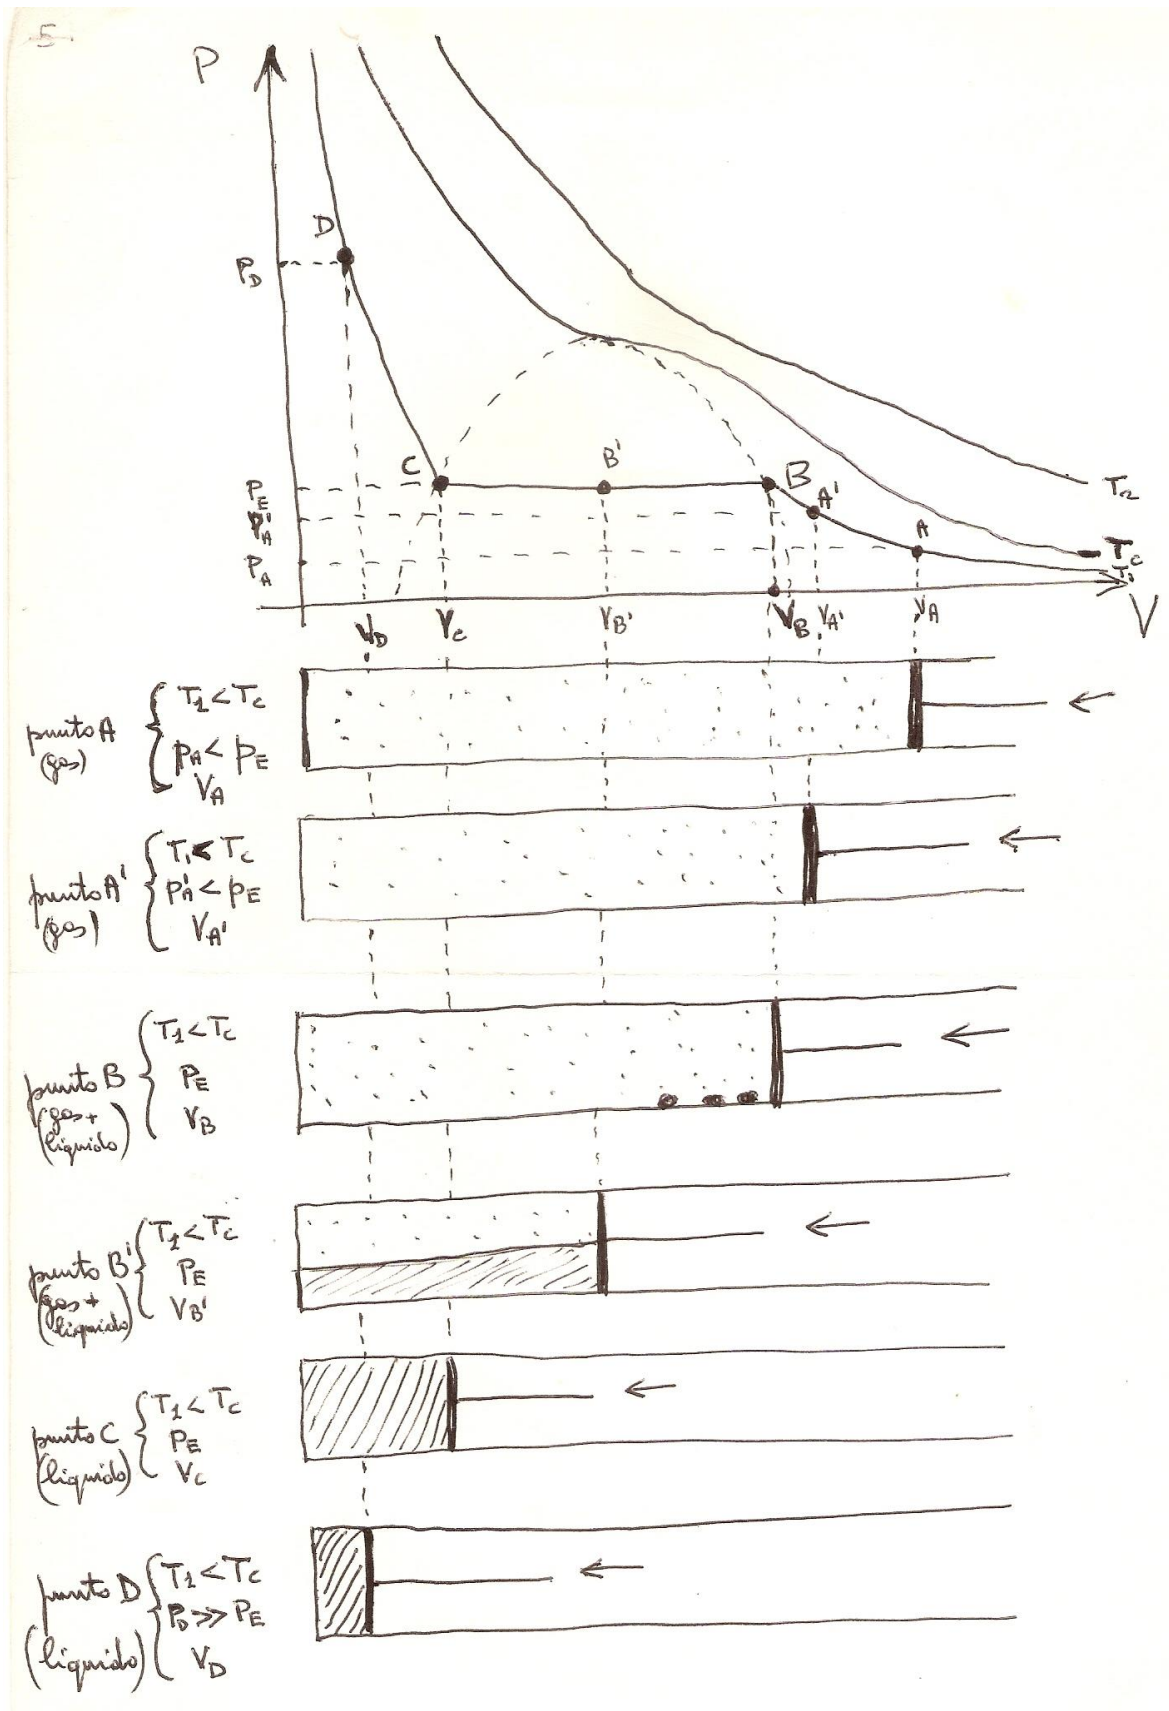 5.
P
D
P_D
C
B'
B
A'
A
T_2
T_c
T_1
P_E
P_A'
P_A
V_D
V_C
V_B'
V_B
V_A'
V_A
V
punto A
(gas)
T_1 < T_c
p_A < p_E
V_A
punto A'
(gas)
T_1 < T_c
p_A' < p_E
V_A'
punto B
(gas +
liquido)
T_1 < T_c
P_E
V_B
punto B'
(gas +
liquido)
T_1 < T_c
P_E
V_B'
punto C
(liquido)
T_1 < T_c
P_E
V_C
punto D
(liquido)
T_1 < T_c
P_D >> P_E
V_D